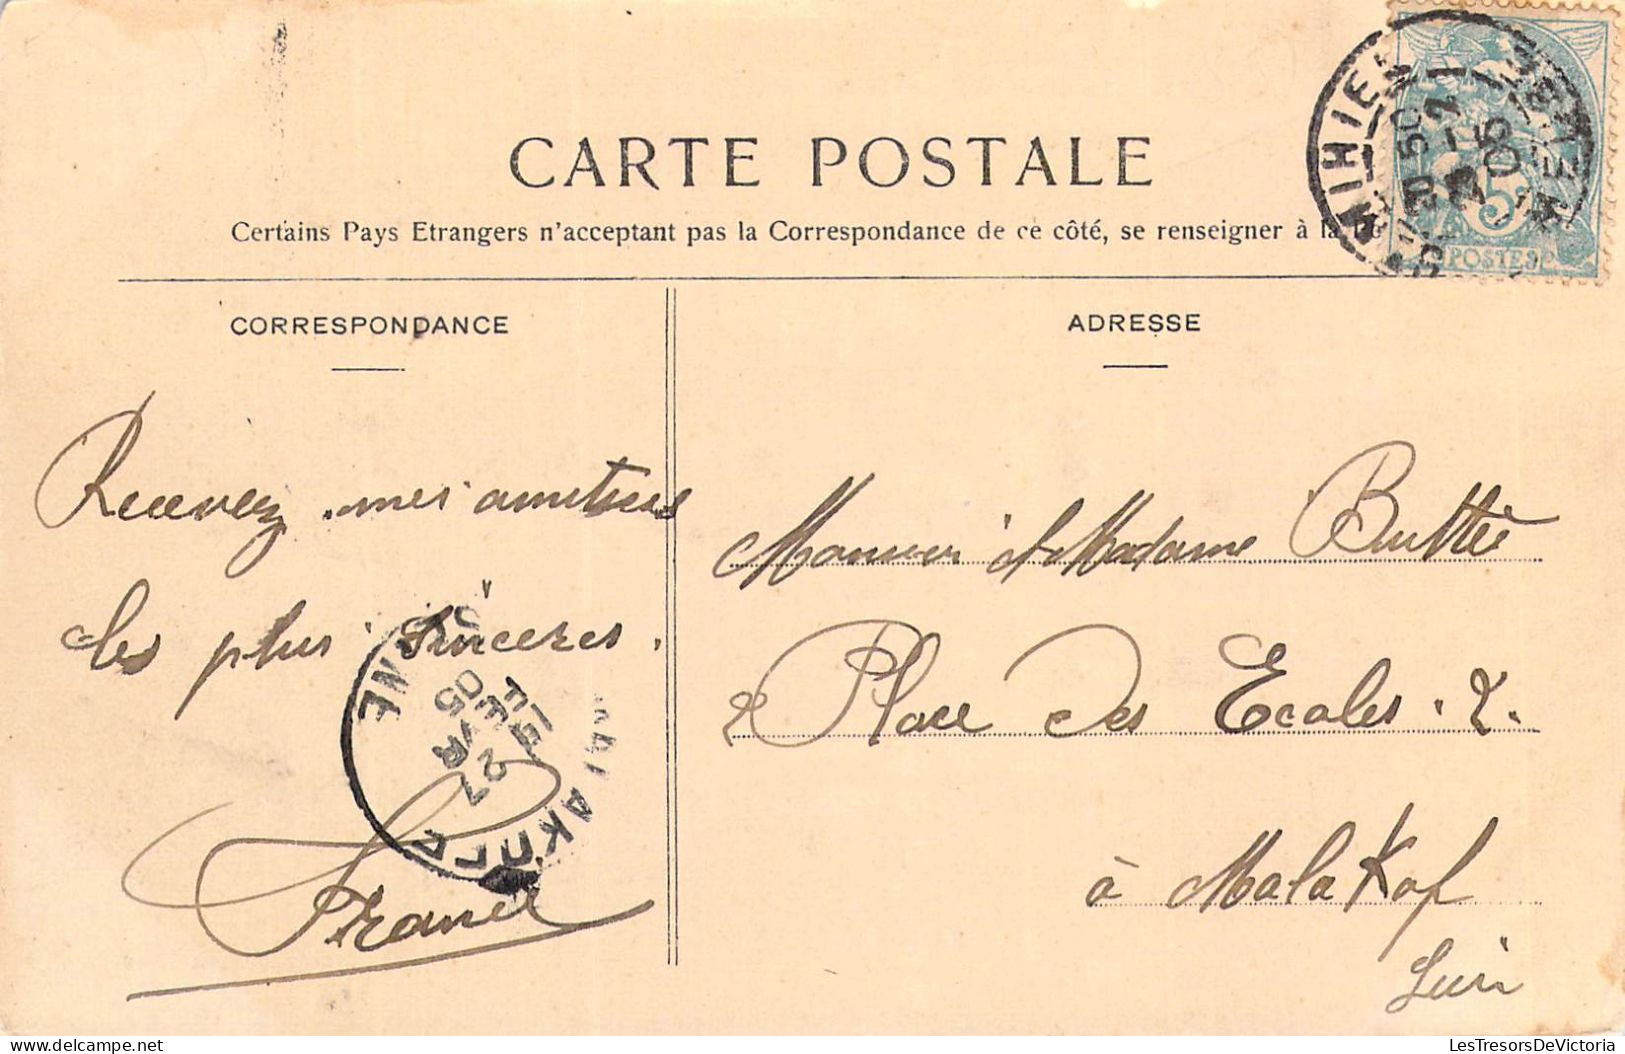 CARTE POSTALE
Certains Pays Etrangers n'acceptant pas la Correspondance de ce côté, se renseigner à la
POSTES
5
CORRESPONDANCE
ADRESSE
Recevez mes amitiés
les plus sincères.
France
Monsieur et Madame Buttée
2 Place des Ecoles. 2.
à Malakof
Seine
MALAKOFF
SEINE
19 E
27
FEVR
05
LesTresorsDeVictoria